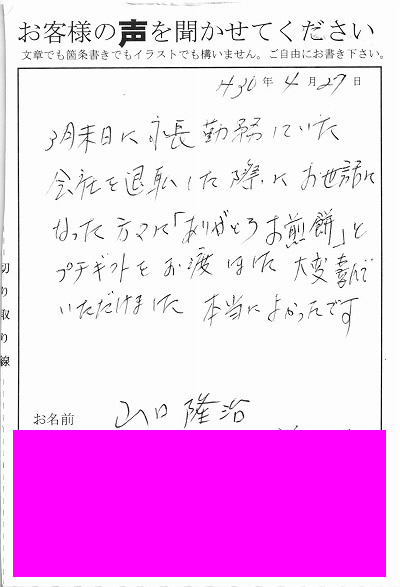 お客様の声を聞かせてください
文章でも箇条書きでもイラストでも構いません。ご自由にお書き下さい。
H30年4月27日
3月末日に永長勤務していた
会社を退職した際にお世話に
なった方々に「ありがとうお煎餅」と
プチギフトをお渡ししました 大変喜んで
いただけました 本当によかったです
切り取り線
お名前 山口隆治